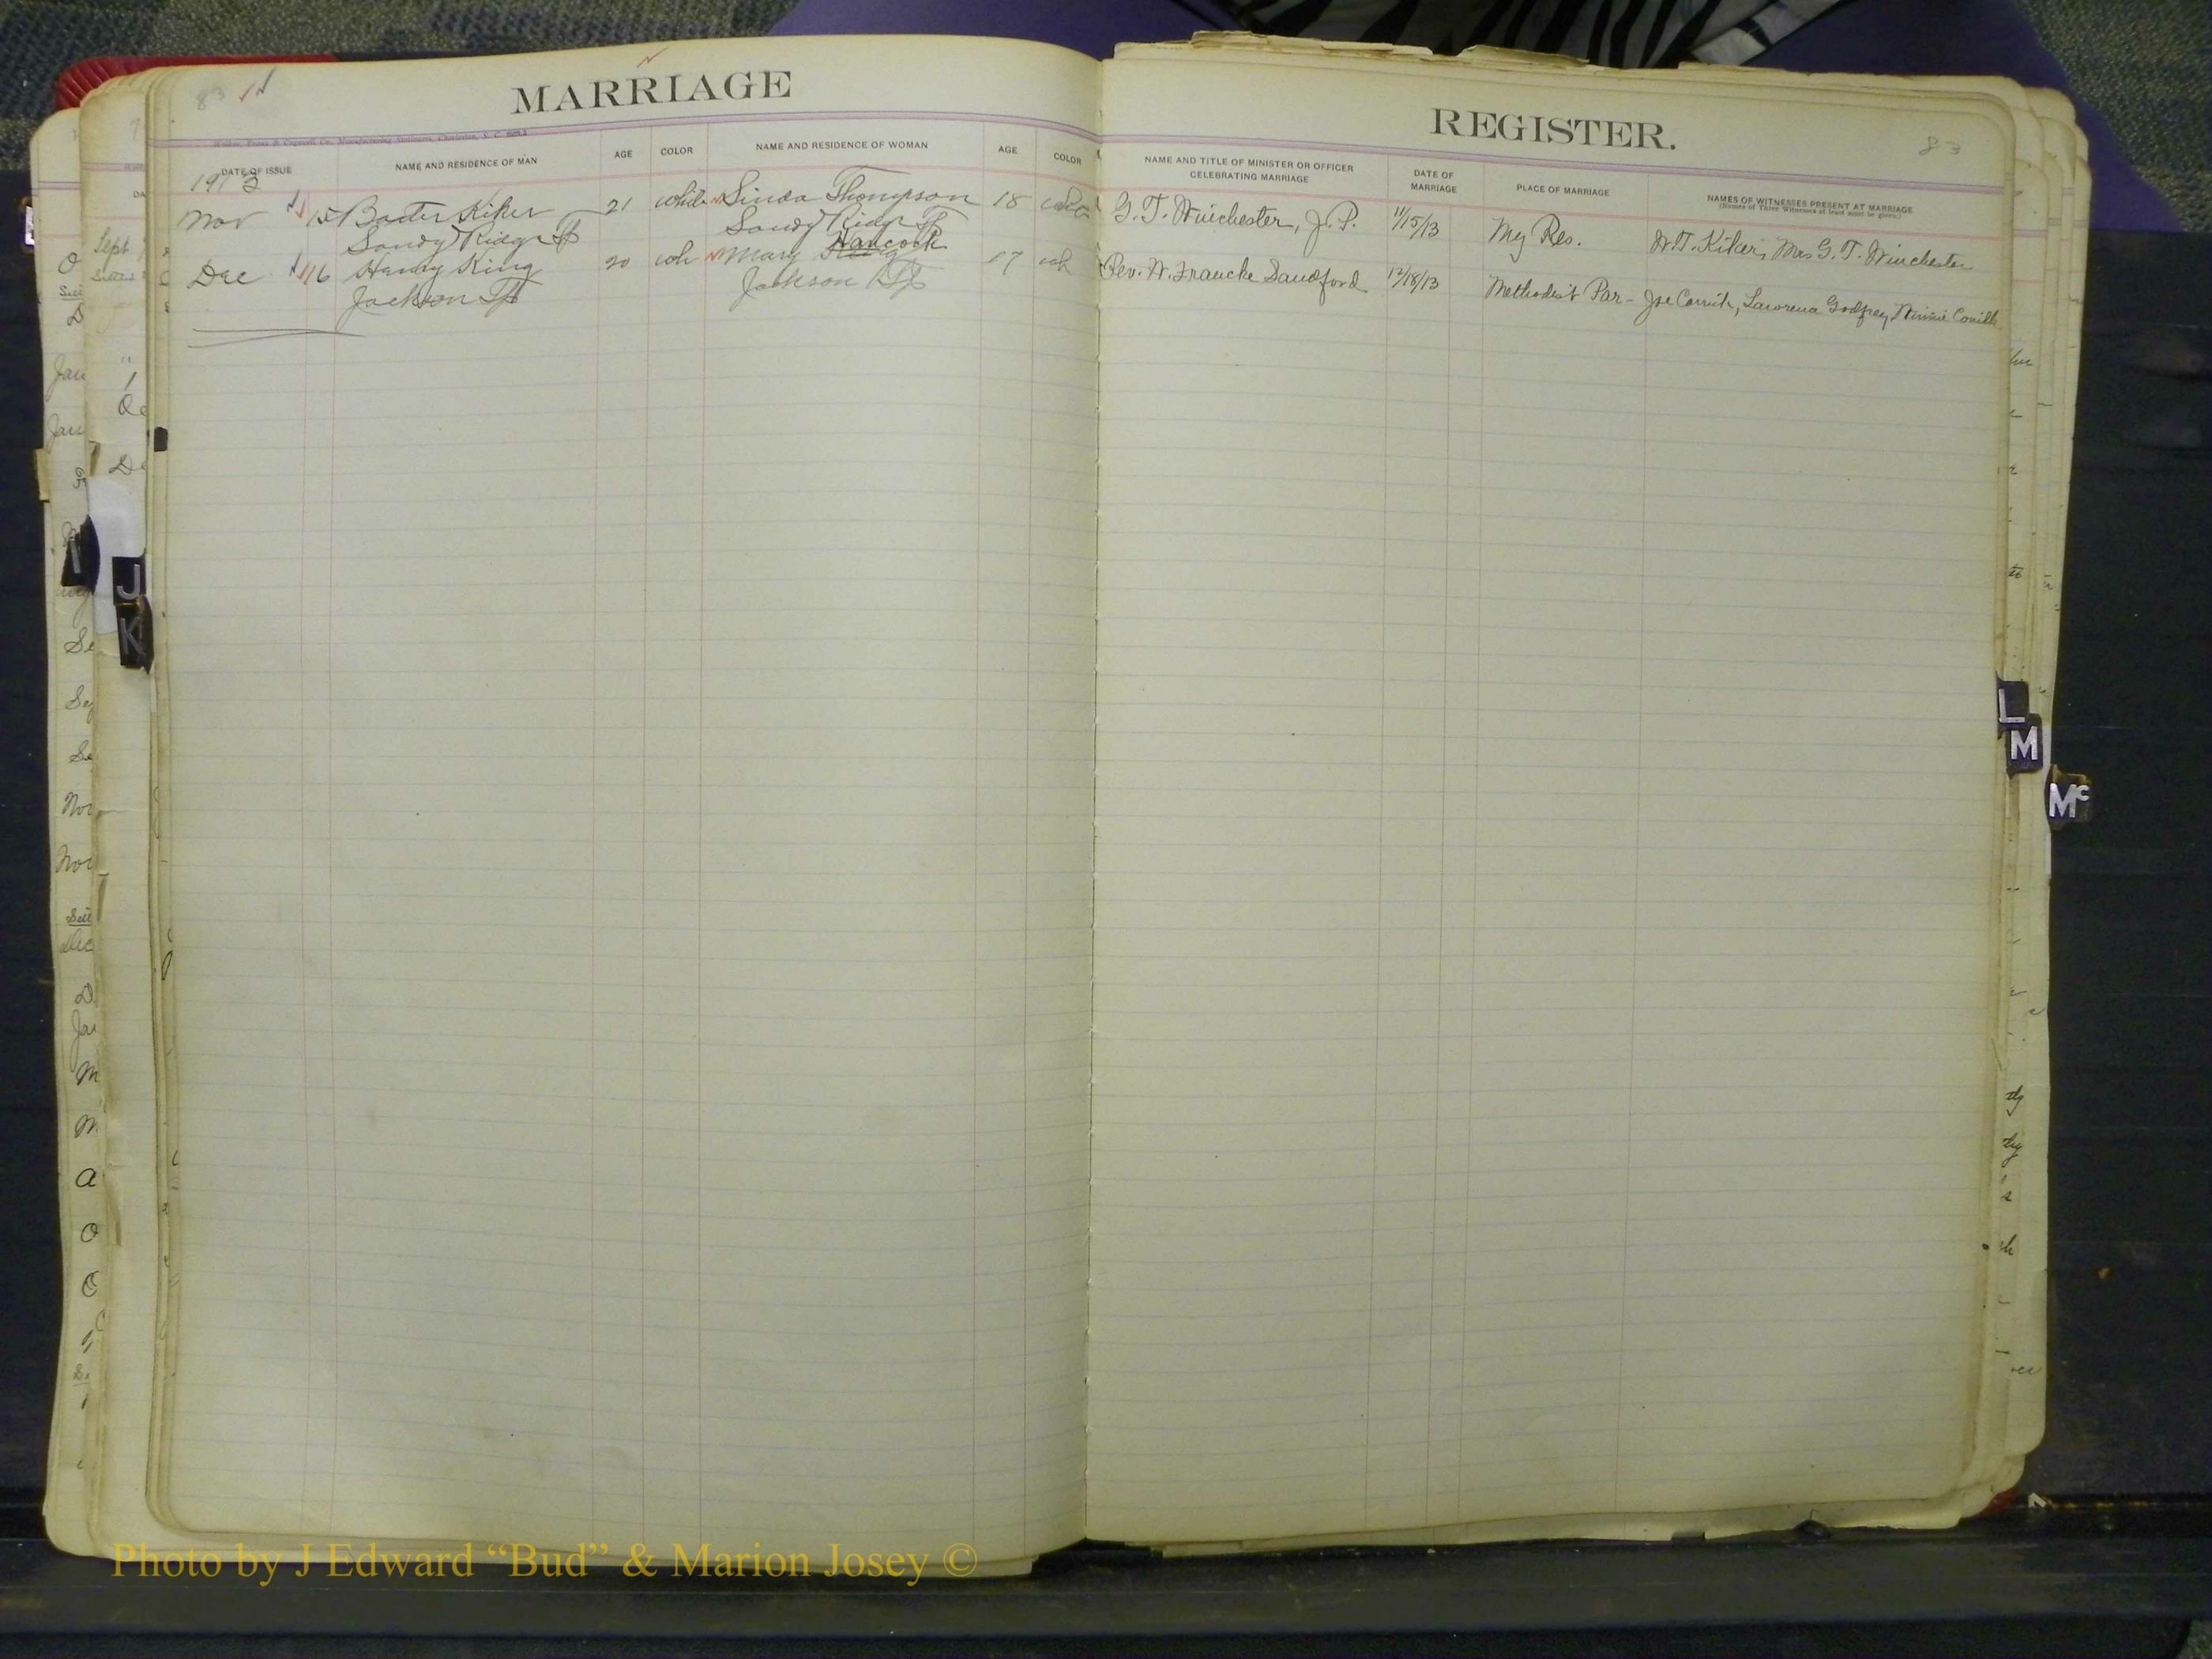 83
MARRIAGE
REGISTER.
83
Walker, Evans & Cogswell Co., Manufacturing Stationers, Charleston, S. C.
DATE OF ISSUE
NAME AND RESIDENCE OF MAN
AGE
COLOR
NAME AND RESIDENCE OF WOMAN
AGE
COLOR
NAME AND TITLE OF MINISTER OR OFFICER
CELEBRATING MARRIAGE
DATE OF
MARRIAGE
PLACE OF MARRIAGE
NAMES OF WITNESSES PRESENT AT MARRIAGE
(Names of Three Witnesses at least must be given)
1913
Nov 15 Baxter Kiker 21 white Linda Thompson 18 white G. T. Winchester, J. P. 11/15/13 My Res. W. T. Kiker, Mrs G. T. Winchester
Sandy Ridge Tp Sandy Ridge Tp
Hancock
Dec 16 Henry King 20 wh Mary King 17 wh Rev. W. Francke Sandford 12/18/13 Methodist Par- Joe Godfrey, Minnie
Jackson Tp Jackson Tp
I
J
K
L
M
Mc
Sept
Jan
Nov
Nov
Photo by J Edward “Bud” & Marion Josey ©